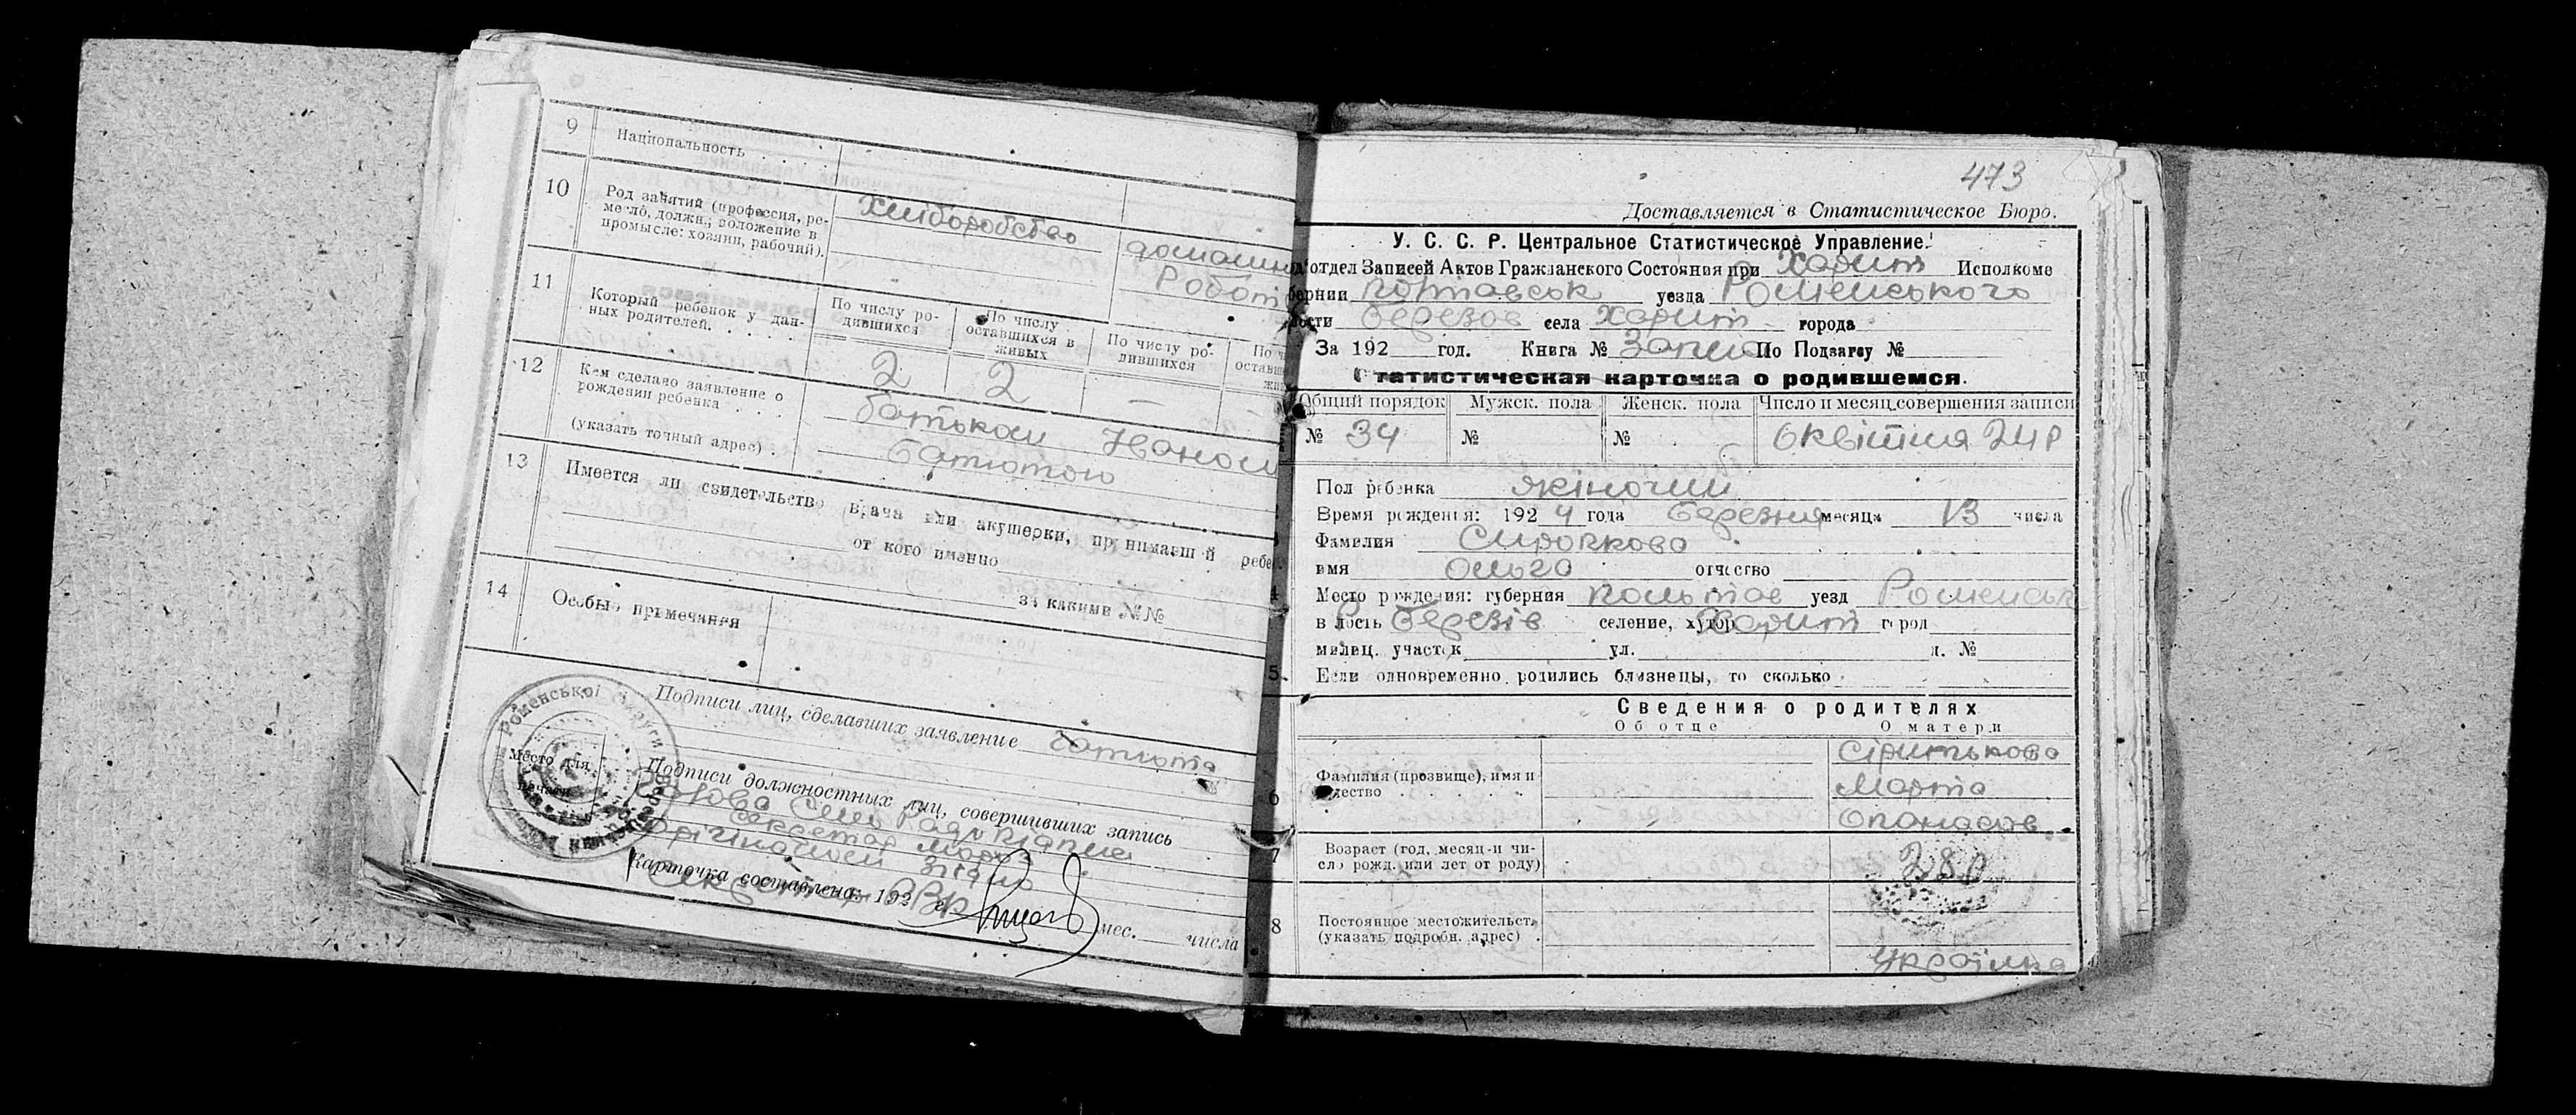 9 Національность . . . .
10 Род занятий (профессия, ре-
месло, должн.; положение в
промысле: хозяин, рабочий).
Хліборобство
домашня
Робот
11 Который ребенок у дан-
ных родителей. . . .
По числу ро-
дившихся
По числу
оставшихся в
живых
По числу ро-
дившихся
2 2 — —
12 Кем сделано заявление о
рождении ребенка . . . .
(указать точный адрес) .
батьком Іваном
Батютою
13 Имеется ли свидетельство врача или акушерки, принимавшей
от кого именно
за какими №№
14 Особые примечания
Подписи лиц, сделавших заявление Батюта
Подписи должностных лиц, совершивших запись
Голова Сіль Ради
Секретар Мороз
З оріґіналом згідно
Карточка составлена: 192 г. мес. числа
Секретар
Место для
печати
Роменської округи
473
Доставляется в Статистическое Бюро.
У. С. С. Р. Центральное Статистическое Управление.
отдел Записей Актов Гражданского Состояния при Харит Исполкоме
бернии Полтавськ уезда Роменського
ости Березов села Харит города
За 192 год. Книга № Запис По Подзагсу №
Статистическая карточка о родившемся.
Общий порядок Мужск. пола Женск. пола Число и месяц совершения записи
№ 34 № № 6 квітня 24 р
Пол ребенка жіночий
Время рождения: 1924 года Березня месяца 13 числа
Фамилия
имя Ольга отчество
Место рождения: губерния Полтав уезд Роменськ
в лость Березів селение, хутор Харит город
милиц. участок ул. д. №
5 Если одновременно родились близнецы, то сколько
Сведения о родителях
Об отце О матери
6 Фамилия (прозвище), имя и
отчество . . . . .
Марта
Опанасов
7 Возраст (год, месяц и чи-
сло рожд. или лет от роду)
28 р
8 Постоянное местожительст.
(указать подробн. адрес) .
Українка